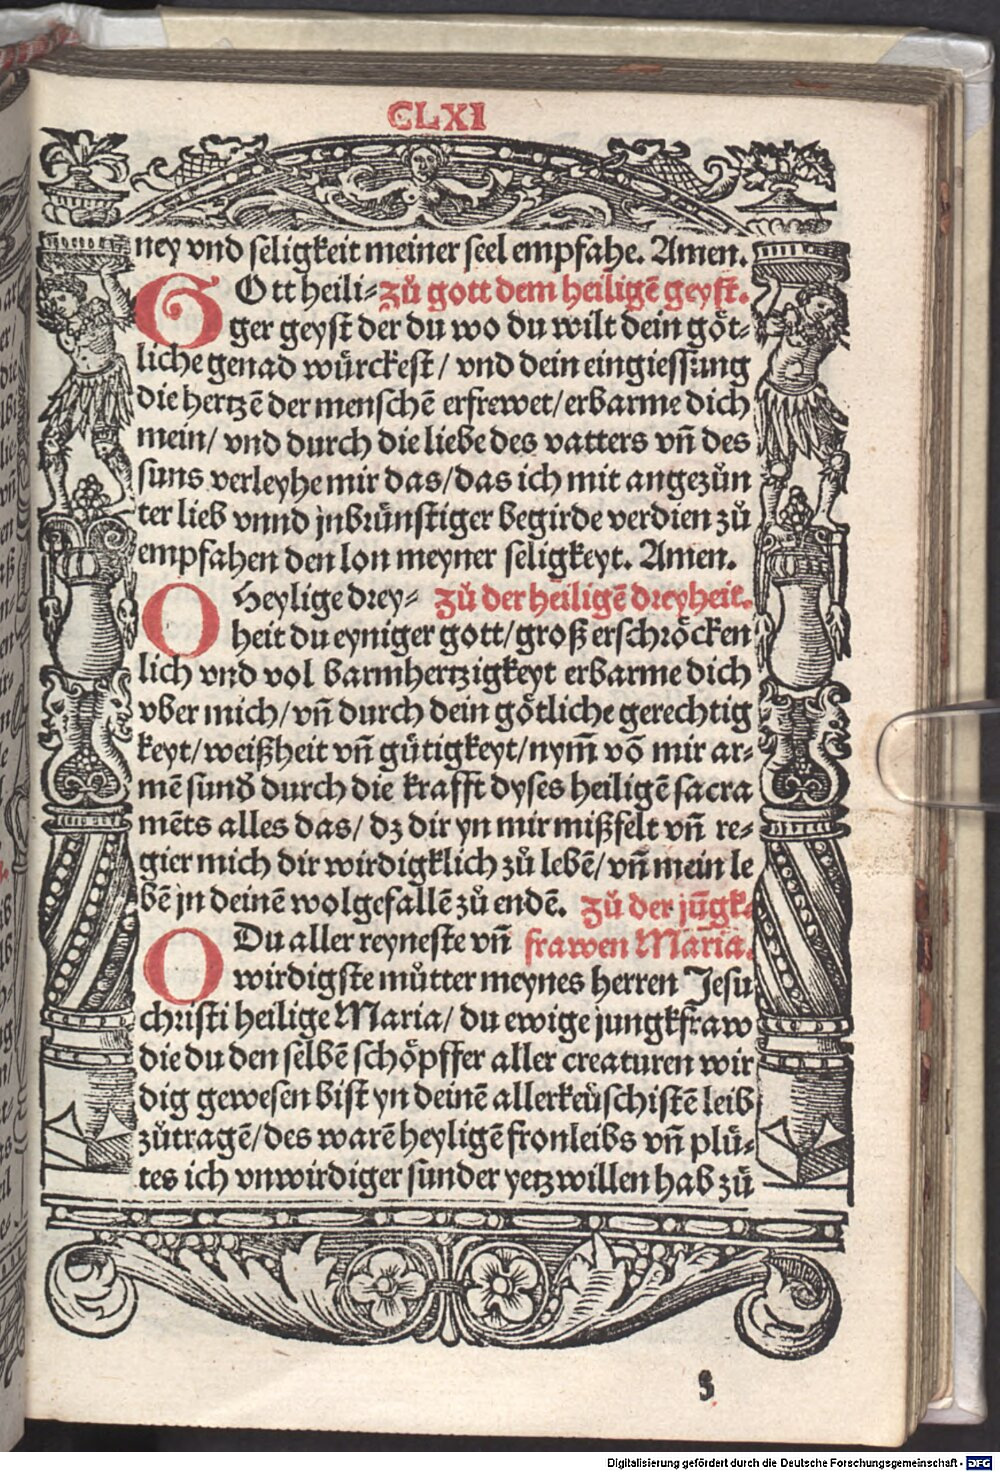 CLXI
ney vnd seligkeit meiner seel empfahe. Amen.
GOtt heili⸗ zů gott dem heiligē geyst.
ger geyst der du wo du wilt dein göt⸗
liche genad würckest / vnd dein eingiessung
die hertzē der menschē erfrewet / erbarme dich
mein / vnd durch die liebe des vatters vn̄ des
suns verleyhe mir das / das ich mit angezün
ter lieb vnnd jnbrünstiger begirde verdien zů
empfahen den lon meyner seligkeyt. Amen.
O Heylige drey⸗ zů der heiligē dreyheit.
heit du eyniger gott / groß erschröcken
lich vnd vol barmhertzigkeyt erbarme dich
vber mich / vn̄ durch dein götliche gerechtig
keyt / weißheit vn̄ gütigkeyt / nym̄ vō mir ar⸗
mē sund̉ durch die krafft dyses heiligē sacra
mēts alles das / dz dir yn mir mißfelt vn̄ re⸗
gier mich dir wirdigklich zů lebē / vn̄ mein le
bē jn deinē wolgefallē zů endē. zů der jūgk⸗
O Du aller reyneste vn̄ frawen Maria.
wirdigste můtter meynes herren Jesu
christi heilige Maria / du ewige jungkfraw
die du den selbē schöpffer aller creaturen wir
dig gewesen bist yn deinē allerkeüschistē leib
zůtragē / des warē heyligē fronleibs vn̄ plů⸗
tes ich vnwirdiger sunder yetz willen hab zů
Digitalisierung gefördert durch die Deutsche Forschungsgemeinschaft - DFG